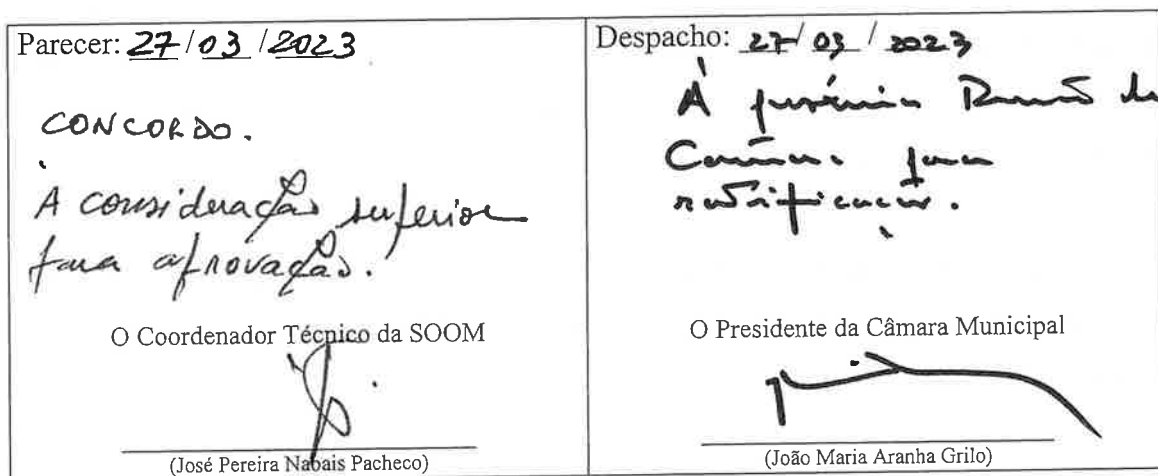 Parecer: 27/03/2023
CONCORDO.
À consideração superior
para aprovação.
O Coordenador Técnico da SOOM
(José Pereira Nabais Pacheco)
Despacho: 27/03/2023
À próxima Reunião de
Câmara para
ratificação.
O Presidente da Câmara Municipal
(João Maria Aranha Grilo)